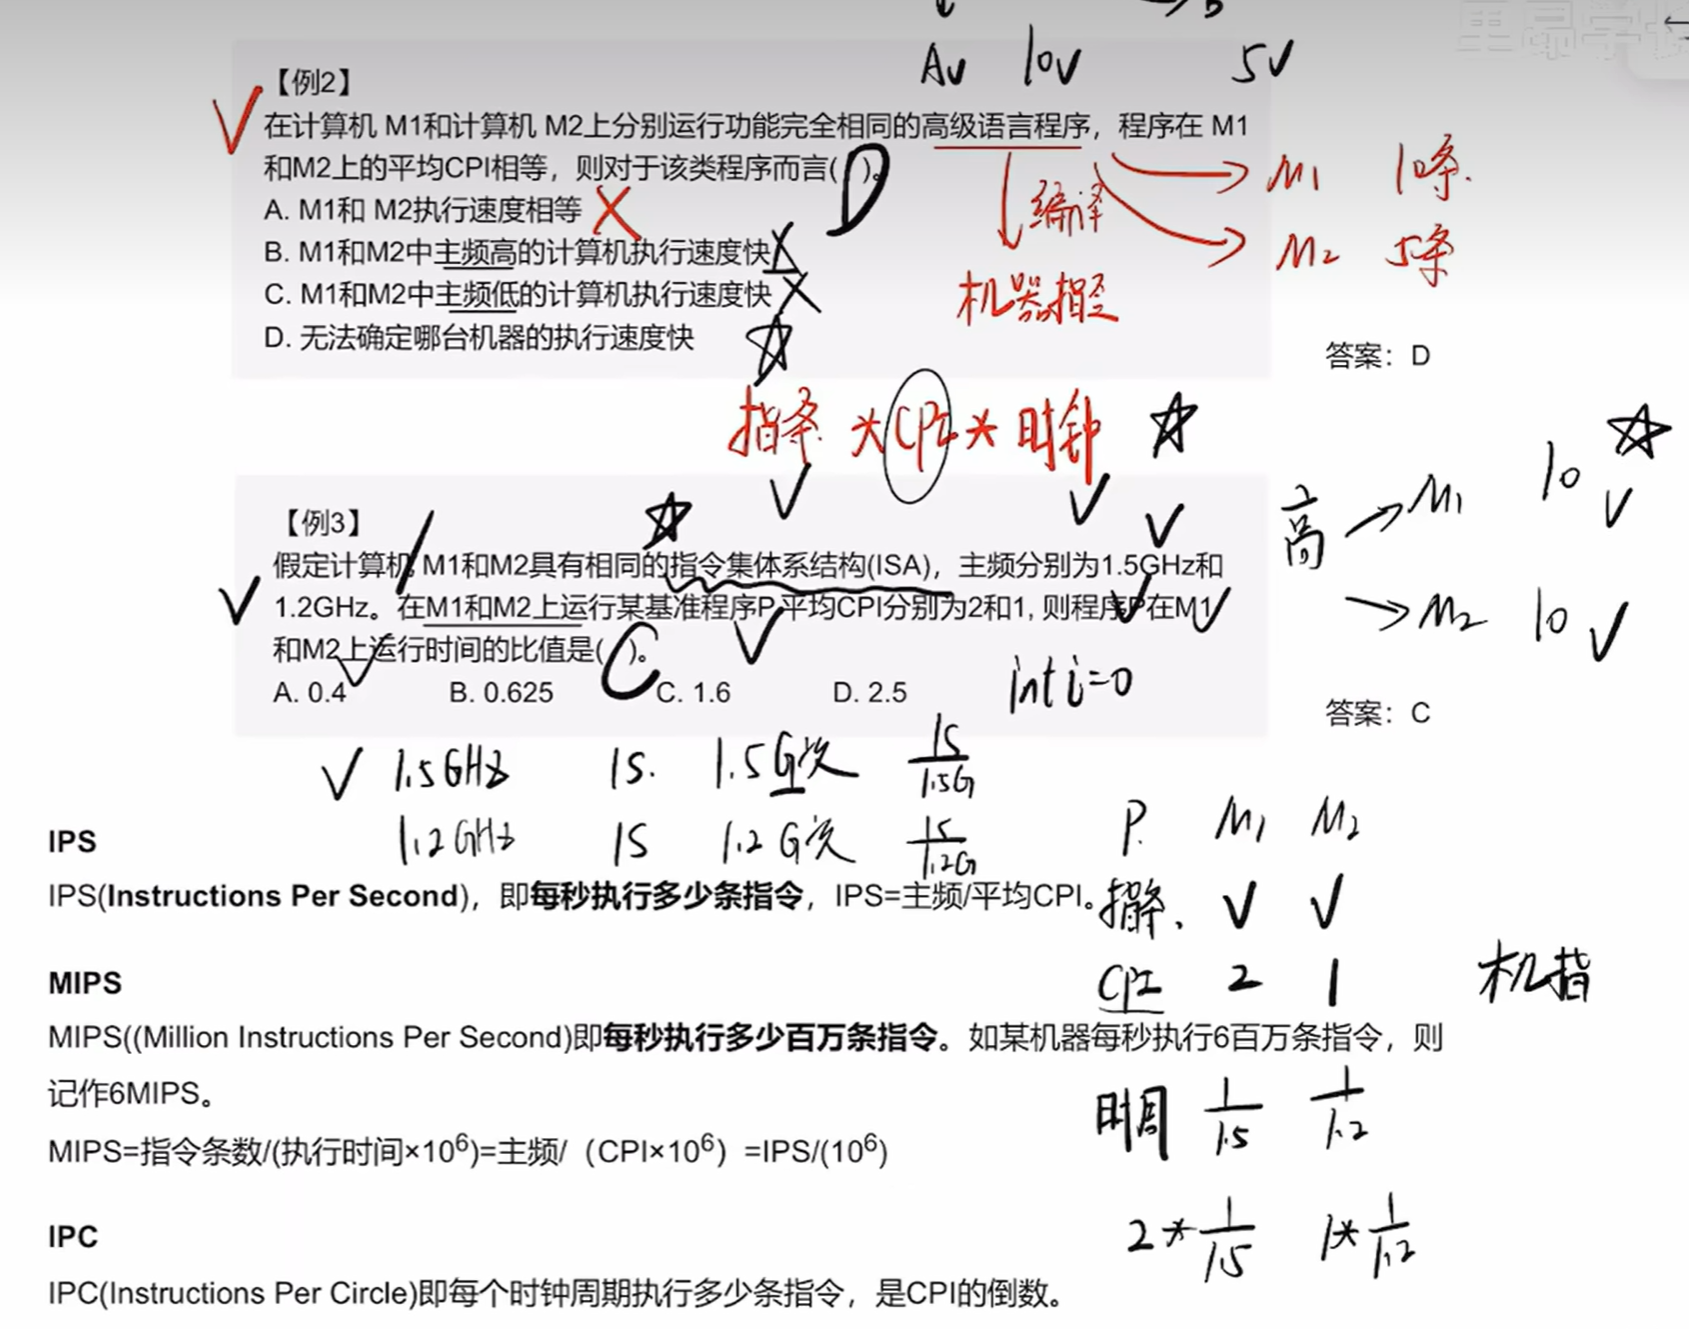 Av 10v 5v
【例2】
在计算机 M1和计算机 M2上分别运行功能完全相同的高级语言程序，程序在 M1
和M2上的平均CPI相等，则对于该类程序而言( )。
D
A. M1和 M2执行速度相等
B. M1和M2中主频高的计算机执行速度快
C. M1和M2中主频低的计算机执行速度快
D. 无法确定哪台机器的执行速度快
编译
机器指令
M1 10条.
M2 5条
答案：D
指条 * CPI * 时钟
高
M1 10
M2 10
【例3】
假定计算机 M1和M2具有相同的指令集体系结构(ISA)，主频分别为1.5GHz和
1.2GHz。在M1和M2上运行某基准程序P,平均CPI分别为2和1, 则程序P在M1
和M2上运行时间的比值是( )。
C
A. 0.4 B. 0.625 C. 1.6 D. 2.5
int i=0
答案：C
1.5GHz 1S. 1.5G次 1S/1.5G
1.2GHz 1S 1.2G次 1S/1.2G
IPS
IPS(Instructions Per Second)，即每秒执行多少条指令，IPS=主频/平均CPI。
MIPS
MIPS((Million Instructions Per Second)即每秒执行多少百万条指令。如某机器每秒执行6百万条指令，则
记作6MIPS。
MIPS=指令条数/(执行时间×10⁶)=主频/（CPI×10⁶）=IPS/(10⁶)
IPC
IPC(Instructions Per Circle)即每个时钟周期执行多少条指令，是CPI的倒数。
P. M1 M2
指条.
CPI 2 1
机指
时周 1/1.5 1/1.2
2*1/1.5 1*1/1.2